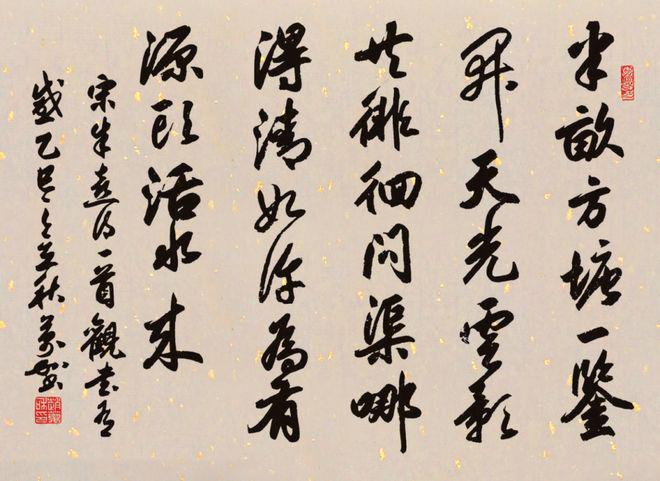 半畝方塘一鑒
開天光雲影
共徘徊問渠哪
得清如許為有
源頭活水來
宋朱熹詩一首觀書有
感乙巳之立秋